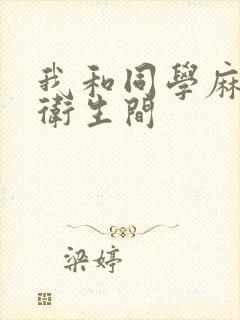 我和同學麻
衛生間
梁婷